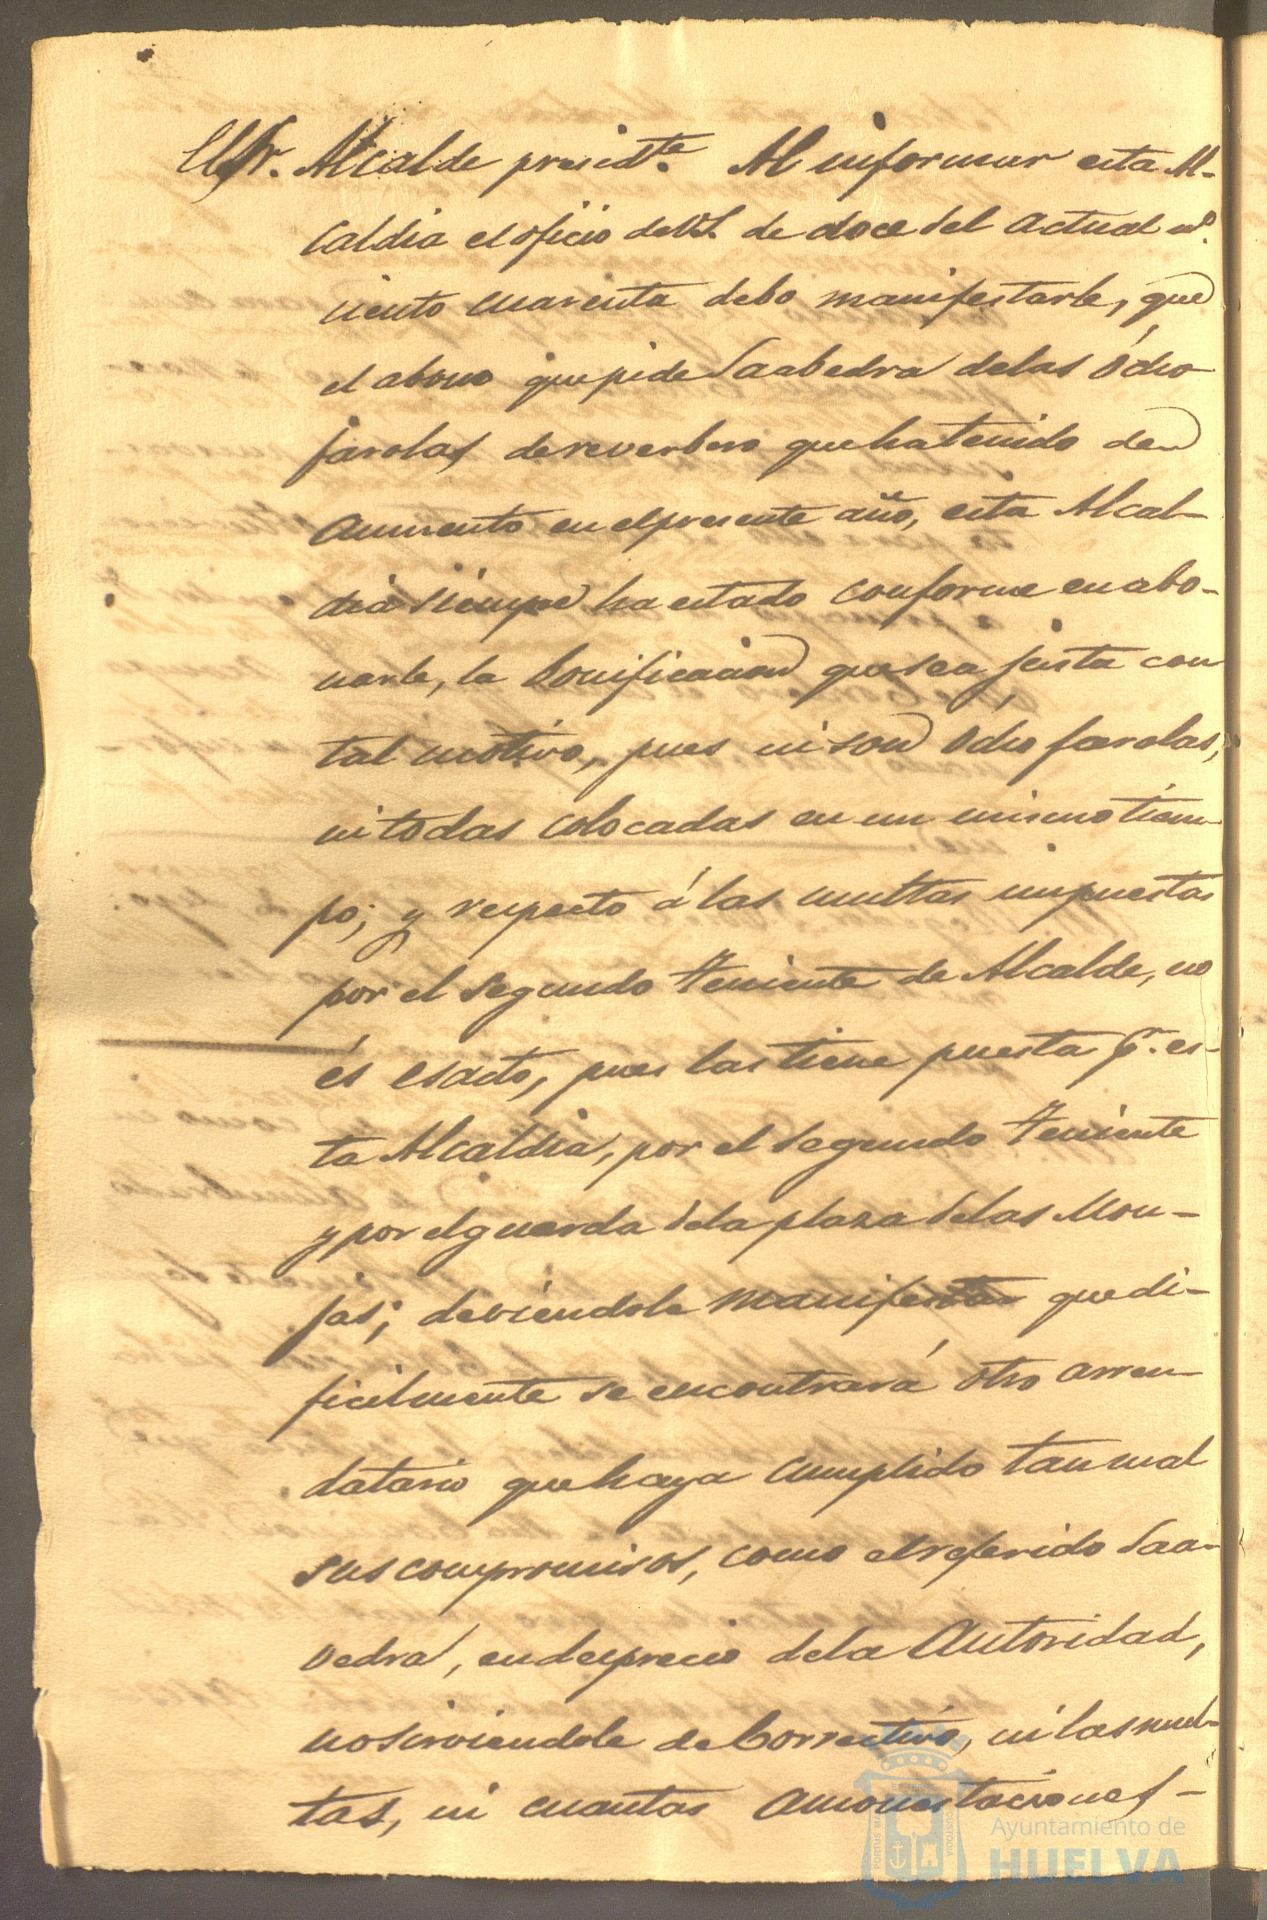 El Sr. Alcalde presidte. Al informar esta Al-
caldia el oficio de V.S. de doce del actual nº.
ciento cuarenta debo manifestarle, que
el abono que pide Saabedra de las ócho
farolas de reverbero que ha tenido de
aumento en el presente año, esta Alcal-
dia siempre ha estado conforme en abo-
narle, la bonificacion que sea justa con
tal motivo, pues ni son ócho farolas,
ni todas colocadas en un mismo tiem-
po; y respecto á las multas impuestas
por el segundo Teniente de Alcalde, no
és esacto, pues las tiene puesta pr. es-
ta Alcaldia, por el segundo Teniente
y por el guarda de la plaza de las Mon-
jas; deviéndole manifestar que di-
ficilmente se encontrará otro arren-
datario que haya cumplido tan mal
sus compromisos, como el referido Saa-
vedra, en desprecio de la Autoridad,
no sirviendole de correctivo, ni las mul-
tas, ni cuantas amonestaciones-
Ayuntamiento de
HUELVA